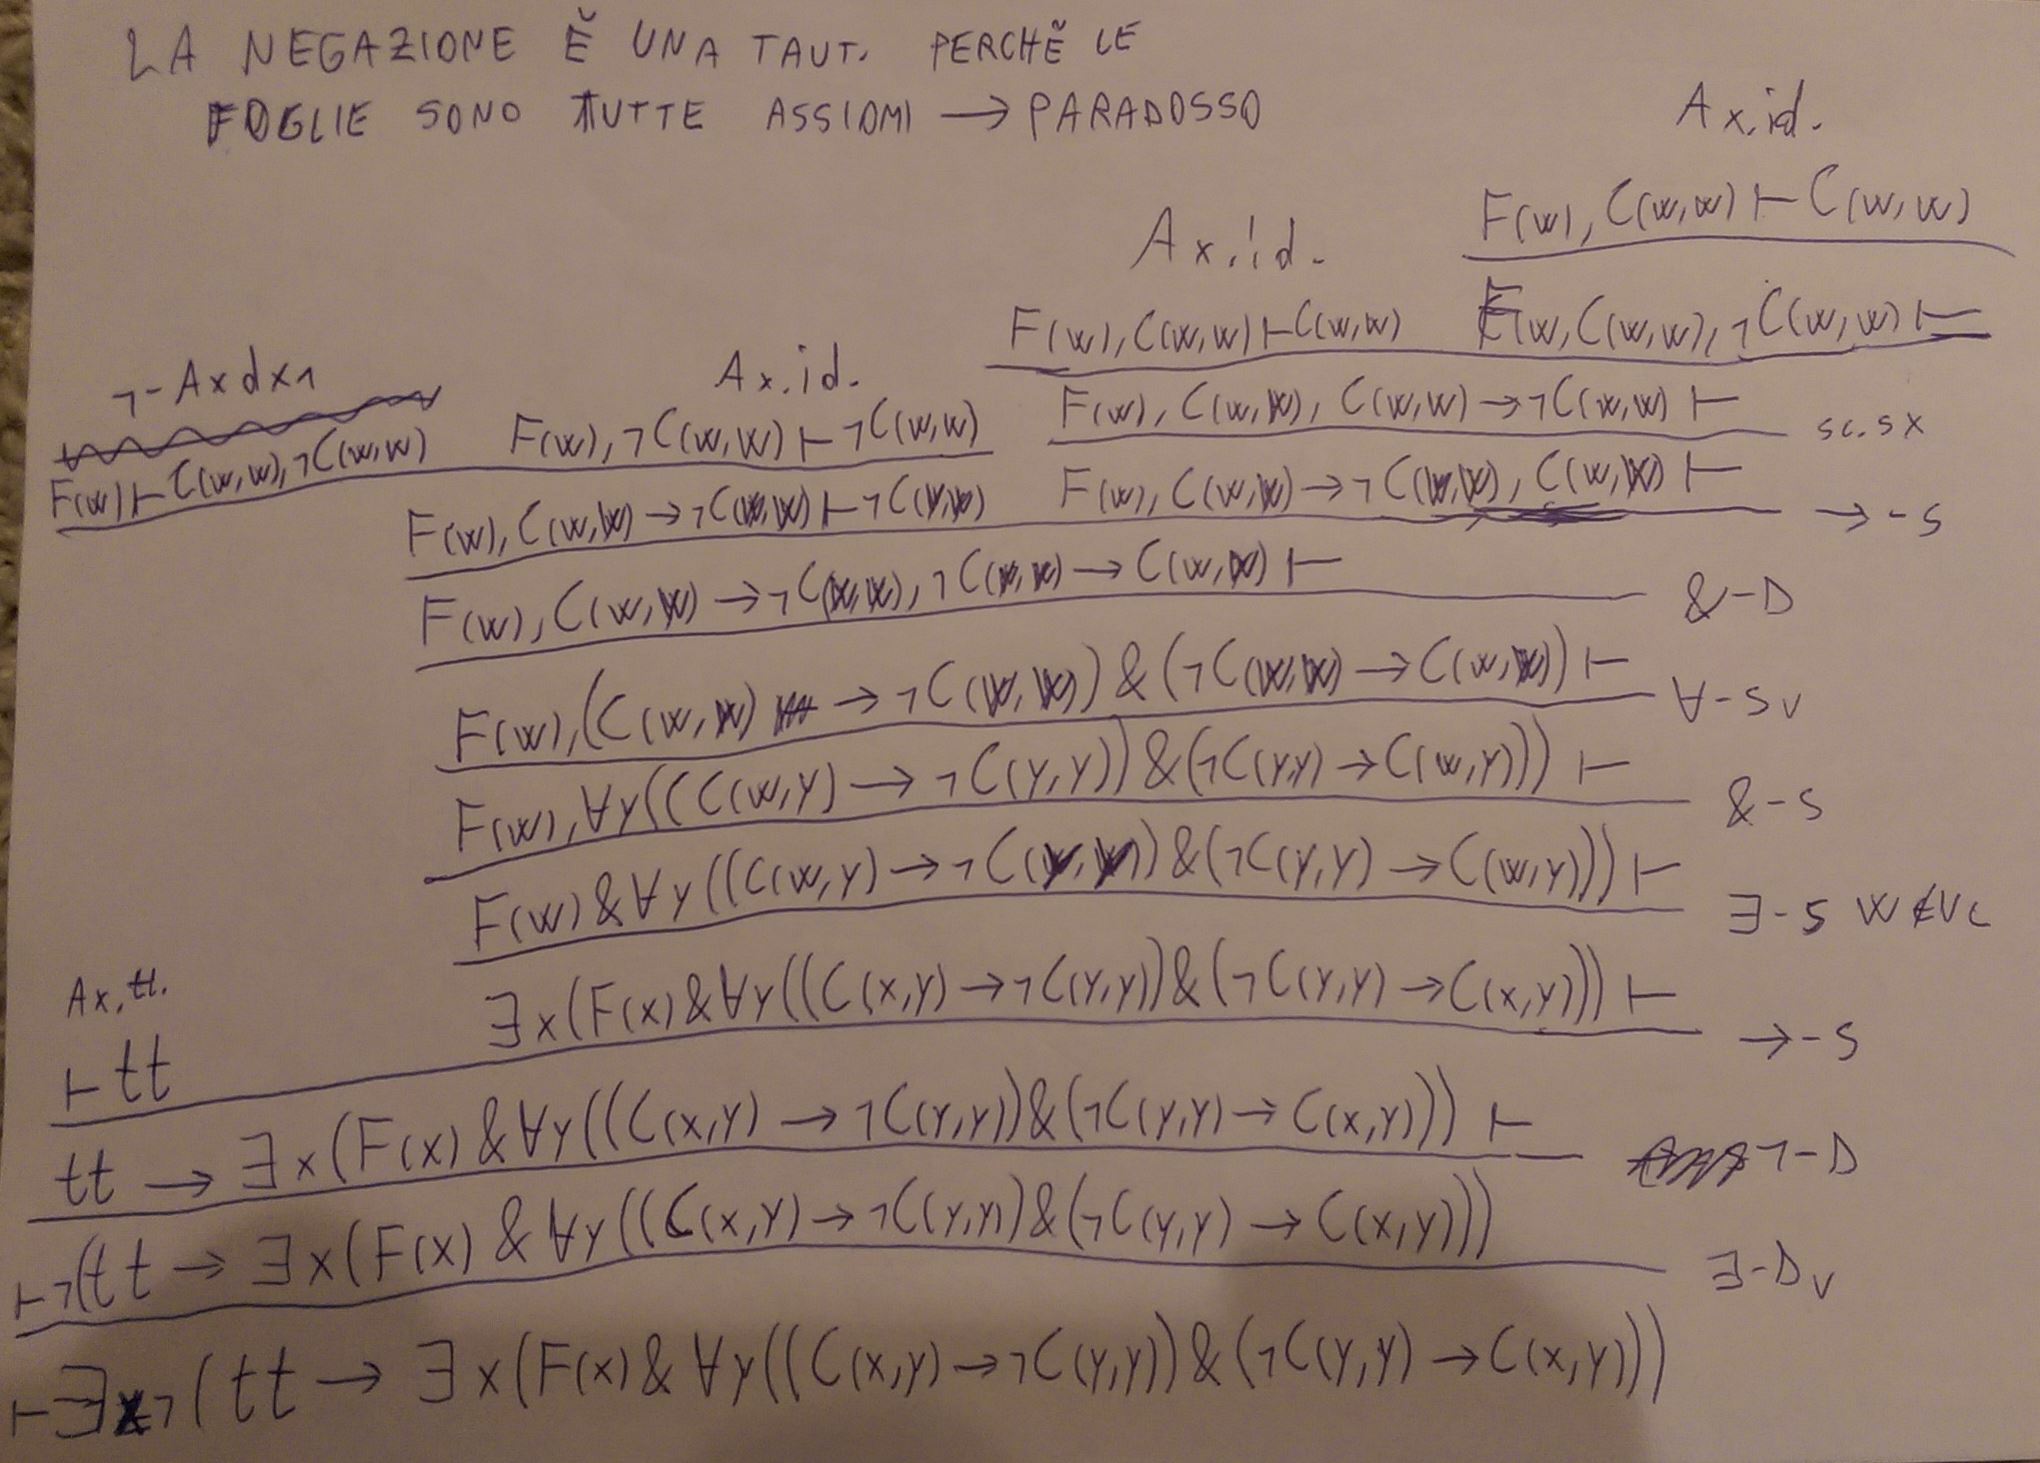 LA NEGAZIONE È UNA TAUT. PERCHÈ LE
FOGLIE SONO TUTTE ASSIOMI → PARADOSSO
Ax.id.
F(w), C(w,w) ⊢ C(w,w)
Ax.id.
F(w), C(w,w) ⊢ C(w,w)
F(w, C(w,w), ¬C(w,w) ⊢
¬-Axdx1
Ax.id.
F(w) ⊢ C(w,w), ¬C(w,w)
F(w), ¬C(w,w) ⊢ ¬C(w,w)
F(w), C(w,w), C(w,w) → ¬C(w,w) ⊢
sc.sx
F(w), C(w,w) → ¬C(w,w) ⊢ ¬C(w,w)
F(w), C(w,w) → ¬C(w,w), C(w,w) ⊢
→-S
F(w), C(w,w) → ¬C(w,w), ¬C(w,w) → C(w,w) ⊢
&-D
F(w), (C(w,w) → ¬C(w,w)) & (¬C(w,w) → C(w,w)) ⊢
∀-Sv
F(w), ∀y((C(w,y) → ¬C(y,y)) & (¬C(y,y) → C(w,y))) ⊢
&-S
F(w) & ∀y((C(w,y) → ¬C(y,y)) & (¬C(y,y) → C(w,y))) ⊢
∃-S w∉VL
∃x(F(x) & ∀y((C(x,y) → ¬C(y,y)) & (¬C(y,y) → C(x,y))) ⊢
Ax.tt.
⊢ tt
→-S
tt → ∃x(F(x) & ∀y((C(x,y) → ¬C(y,y)) & (¬C(y,y) → C(x,y))) ⊢
¬-D
⊢ ¬(tt → ∃x(F(x) & ∀y((C(x,y) → ¬C(y,y)) & (¬C(y,y) → C(x,y)))
∃-Dv
⊢ ∃x¬(tt → ∃x(F(x) & ∀y((C(x,y) → ¬C(y,y)) & (¬C(y,y) → C(x,y)))